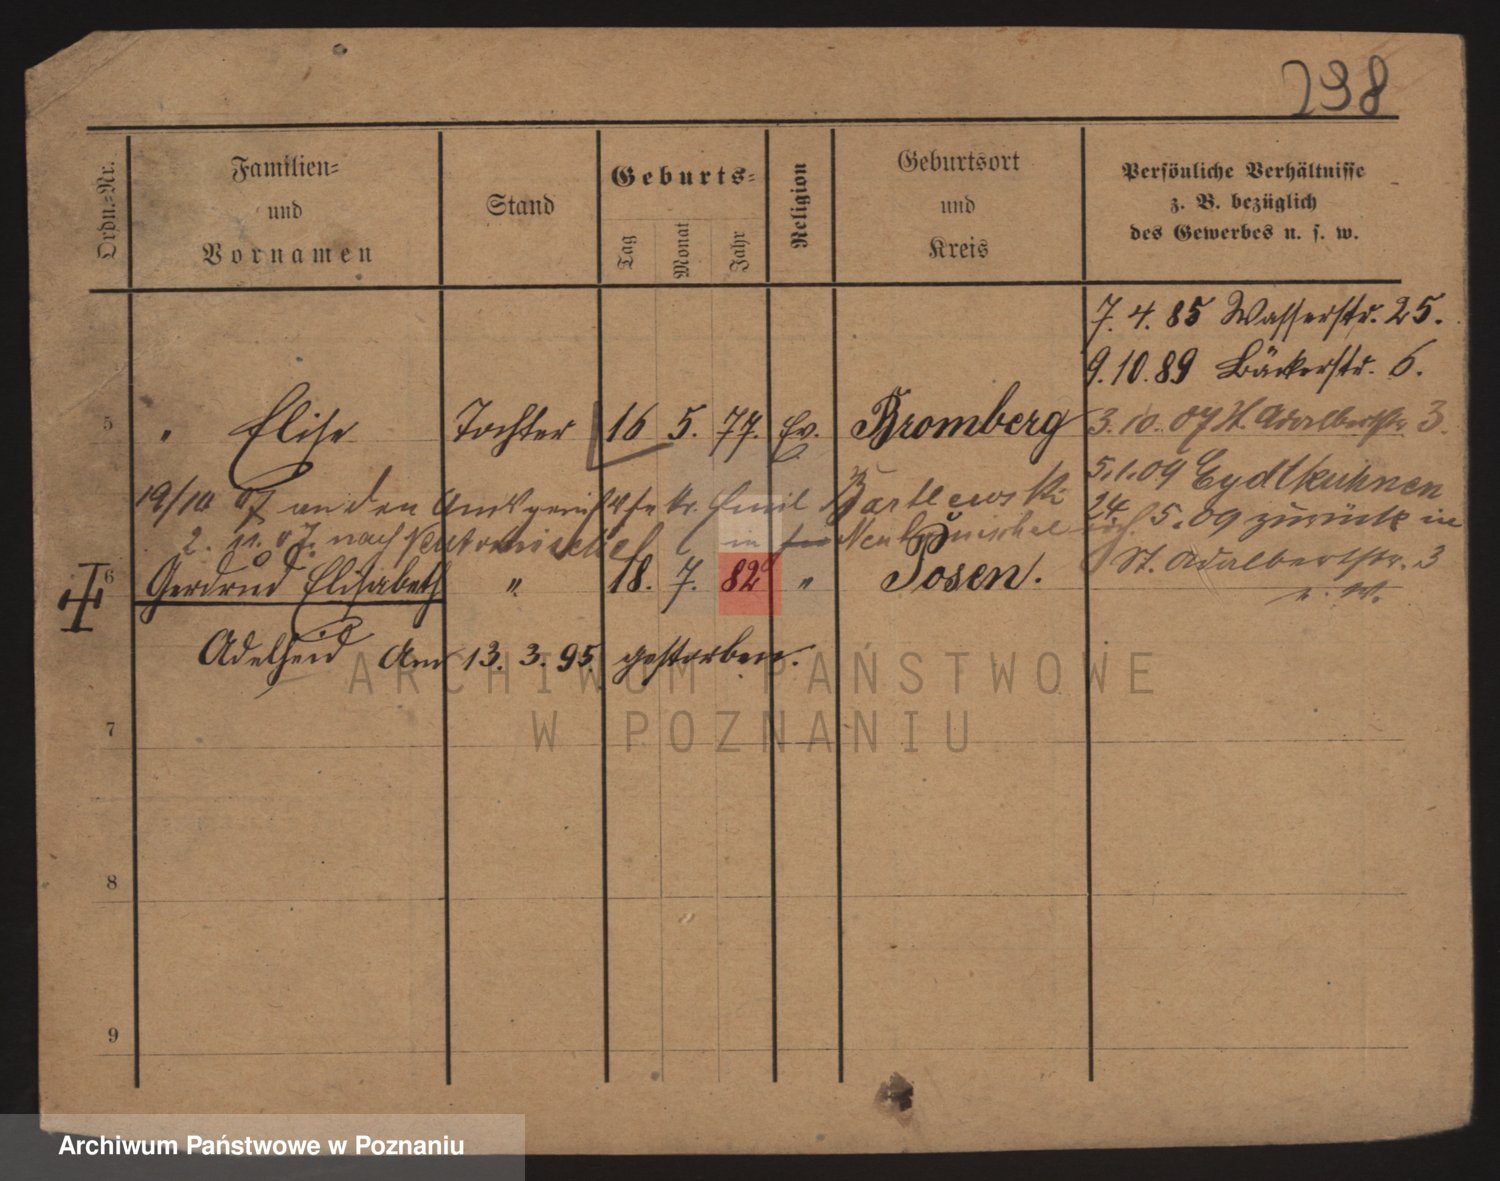 238
Ordn.-Nr.
Familien-
und
Vornamen
Stand
Geburts-
Tag
Monat
Jahr
Religion
Geburtsort
und
Kreis
Persönliche Verhältnisse
z. B. bezüglich
des Gewerbes u. s. w.
7. 4. 85 Wasserstr. 25.
9. 10. 89 Bäckerstr. 6.
5 " Elise Tochter 16 5. 77. Ev. Bromberg
3. 10. 07 St. Adalbertstr. 3.
5. 1. 09 Eydtkuhnen
19/10 07 an den Emil Bartlewski
24. 5. 09 zurück in
2. 11. 07. nach in
St. Adalbertstr. 3
6 Gerdrud Elisabeth " 18. 7. 82 " Posen.
Adelheid Am 13. 3. 95. gestorben.
7
8
9
ARCHIWUM PAŃSTWOWE
W POZNANIU
Archiwum Państwowe w Poznaniu